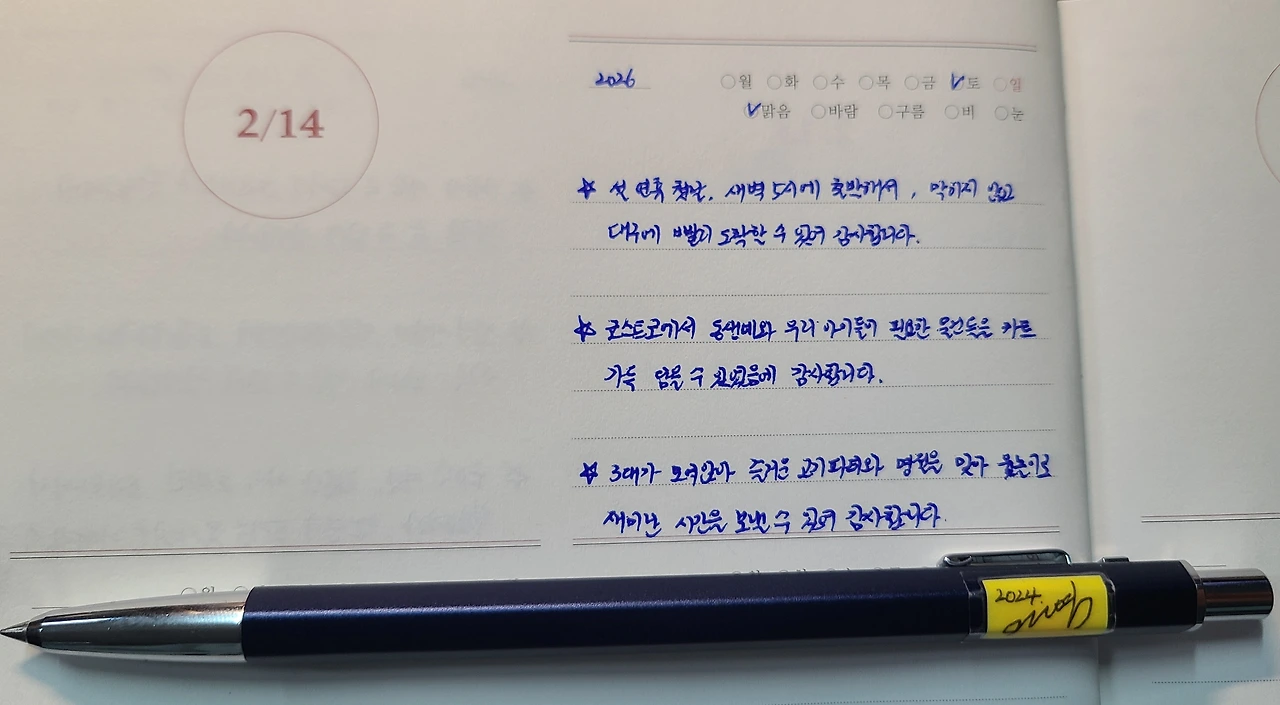 2/14
2026
월 화 수 목 금 토 일
맑음 바람 구름 비 눈
☆ 설 연휴 첫날, 새벽 5시에 출발해서, 막히지 않고
대구에 빨리 도착할 수 있어 감사합니다.
☆ 코스트코에서 동생네와 우리 아이들이 필요한 물건들을 카트
가득 담을 수 있었음에 감사합니다.
☆ 3대가 모여앉아 즐거운 고기파티와 명절을 맞아 윷놀이로
재미난 시간을 보낼 수 있어 감사합니다.
2024.